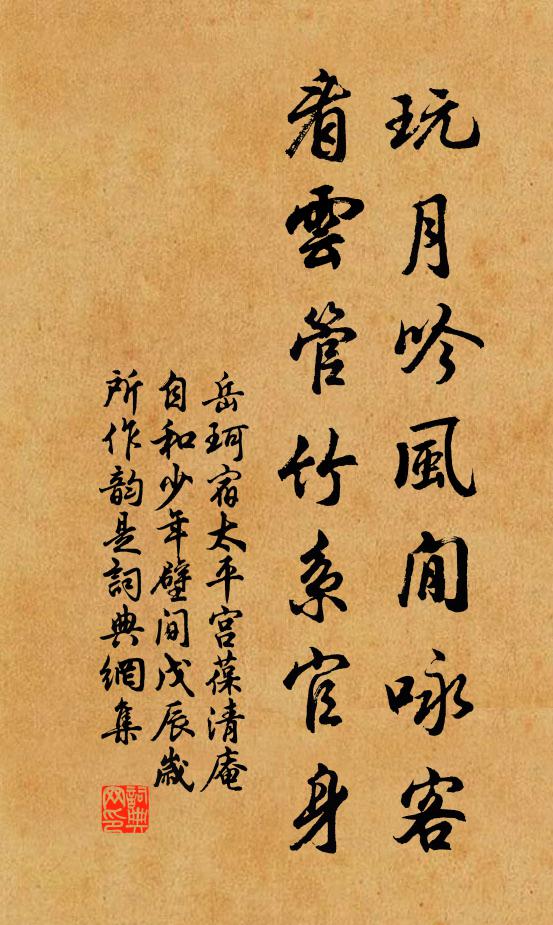 玩月吟風閒咏客
看雲管竹系官身
岳珂宿太平宮葆清庵
自和少年壁间戊辰歲
所作韵是詞典網集
詞典網印